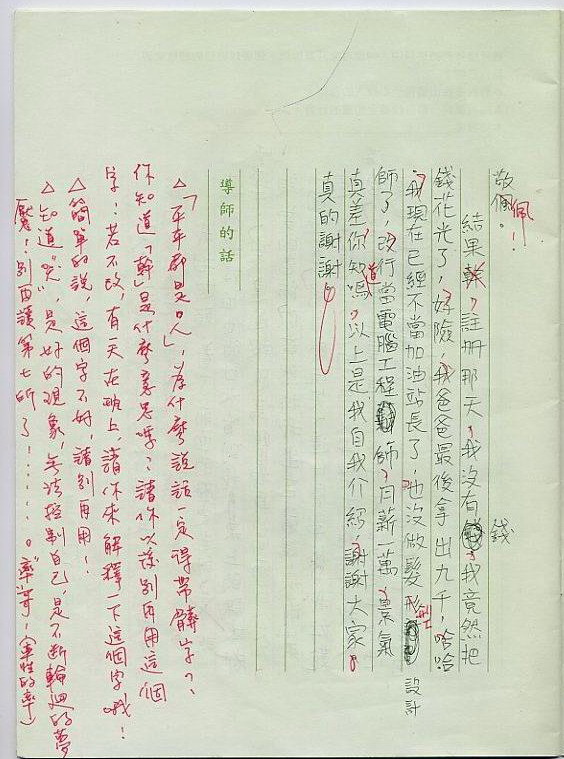 敬佩。佩!
結果幹,註冊那天,我沒有錢,我竟然把
錢花光了,好險,我爸爸最後拿出九千,哈哈
,我現在已經不當加油站長了,也沒做髮形型設計
師了,改行當電腦工程師,月薪一萬,景氣
真差你知道嗎,以上是我自我介紹,謝謝大家。
真的謝謝。
導師的話
△「平平都是人」,為什麼說話一定得帶髒字?
你知道「幹」是什麼意思嗎?請你以後別再用這個
字!若不改,有一天在晚上,請你來解釋一下這個字哦!
△簡單的說,這個字不好,請別再用!
△知道"哭",是好的現象,無法控制自己,是不斷輪迴的夢
魘!別再讀第七所了!……。"率哥"(率性的率)